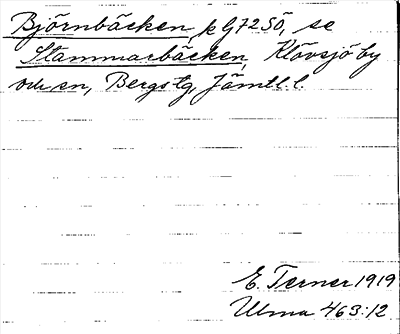 Björnbäcken, k G7250, se
Stammarbäcken, Klövsjö by
och sn, Bergs tg, Jämtl. l.
E. Terner 1919
Ulma 463:12